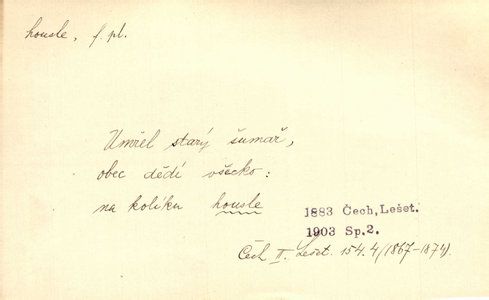 housle, f. pl.
Umřel starý šumař,
obec dědí všecko:
na kolíku housle
1883 Čech, Lešet.
1903 Sp.2.
Čech II. Lešet. 154.4 (1867-1874).